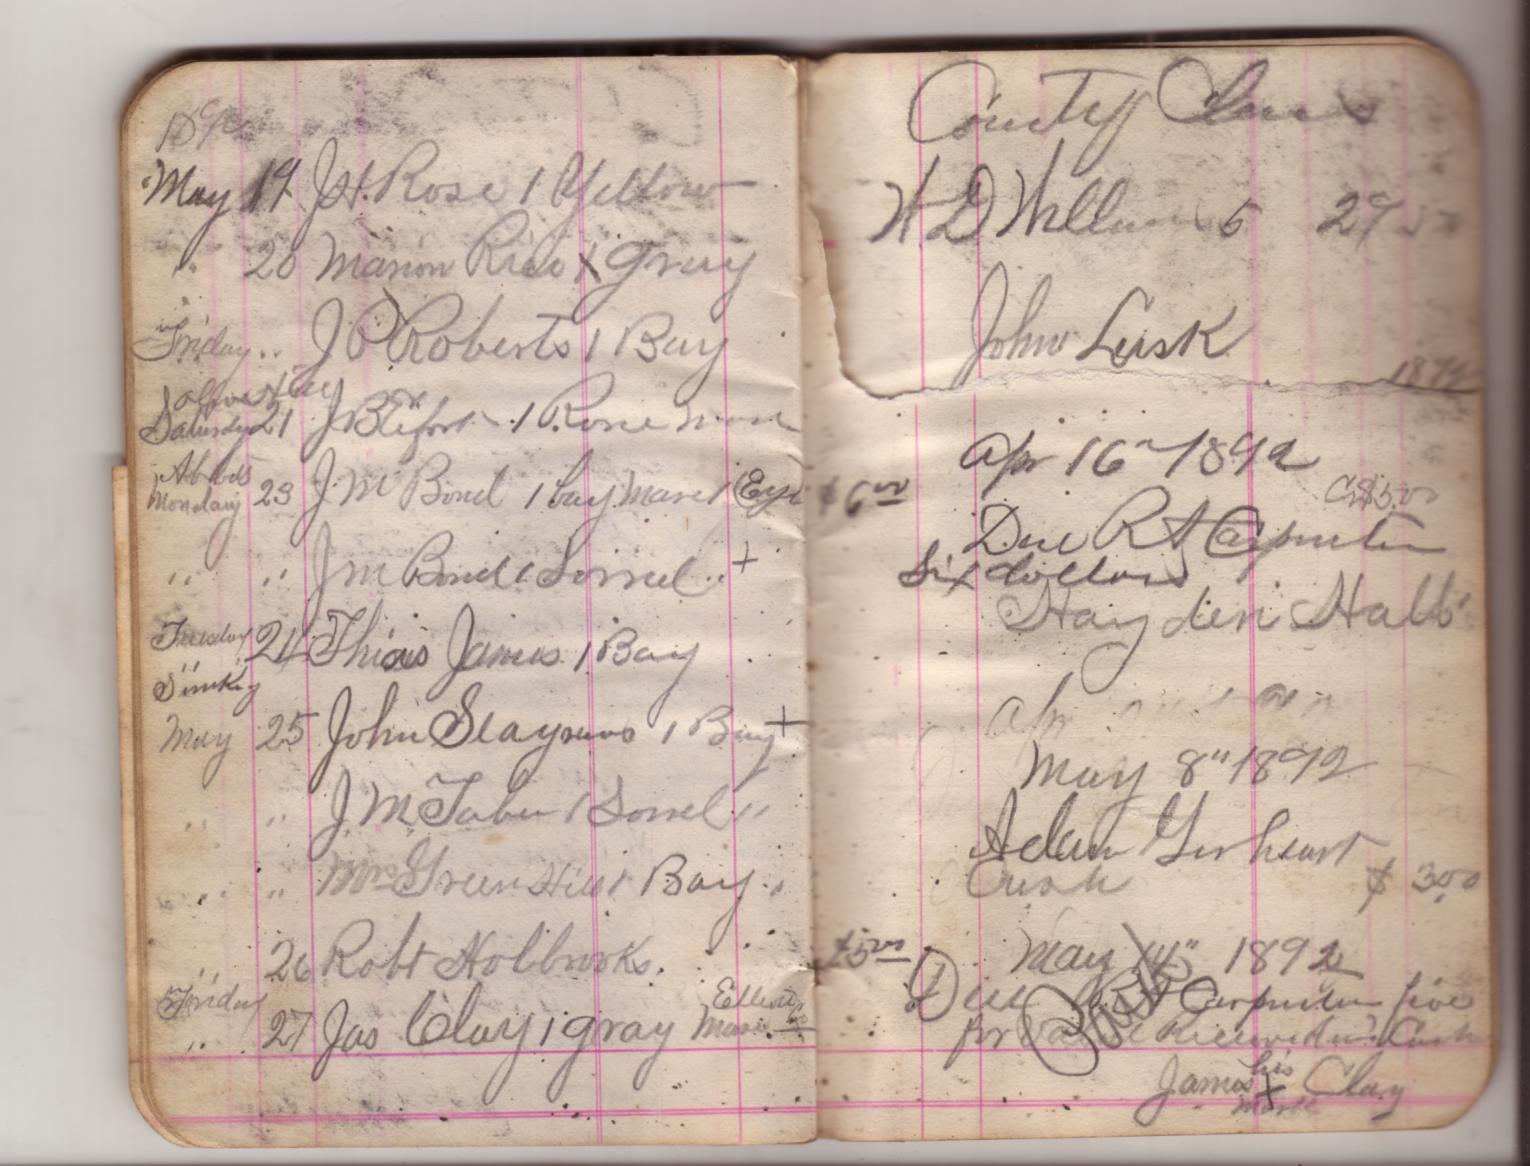 May 19 J.H. Rose 1 Yellow
" 20 Marion Rice 1 gray
Friday " J P Roberts 1 Bay
Saturday 21 J B 1 Rone mare
Monday 23 J. M Bond 1 bay Mare 1 Eye
" " J M Bond 1 Sorrel +
Tuesday 24 James 1 Bay
May 25 John Slaysums 1 Bay +
" " J. M Taber 1 Sorrel "
" " Mrs Green Hill 1 Bay "
26 Robt Holbrooks.
Friday
" 27 Jas Clay 1 gray Mare
County
W D 5 29
John Lusk
1892
Apr 16" 1892
$6.00 Cr $5.00
Due R A Carpenter
Six dollars
Hayden Halb
Apr
May 8" 1892
Adam Gerheart
$3.00
$5.00 May 14" 1892
Due Carpenter five
for Value Received in Cash
Paid
his
James X Clay
mark